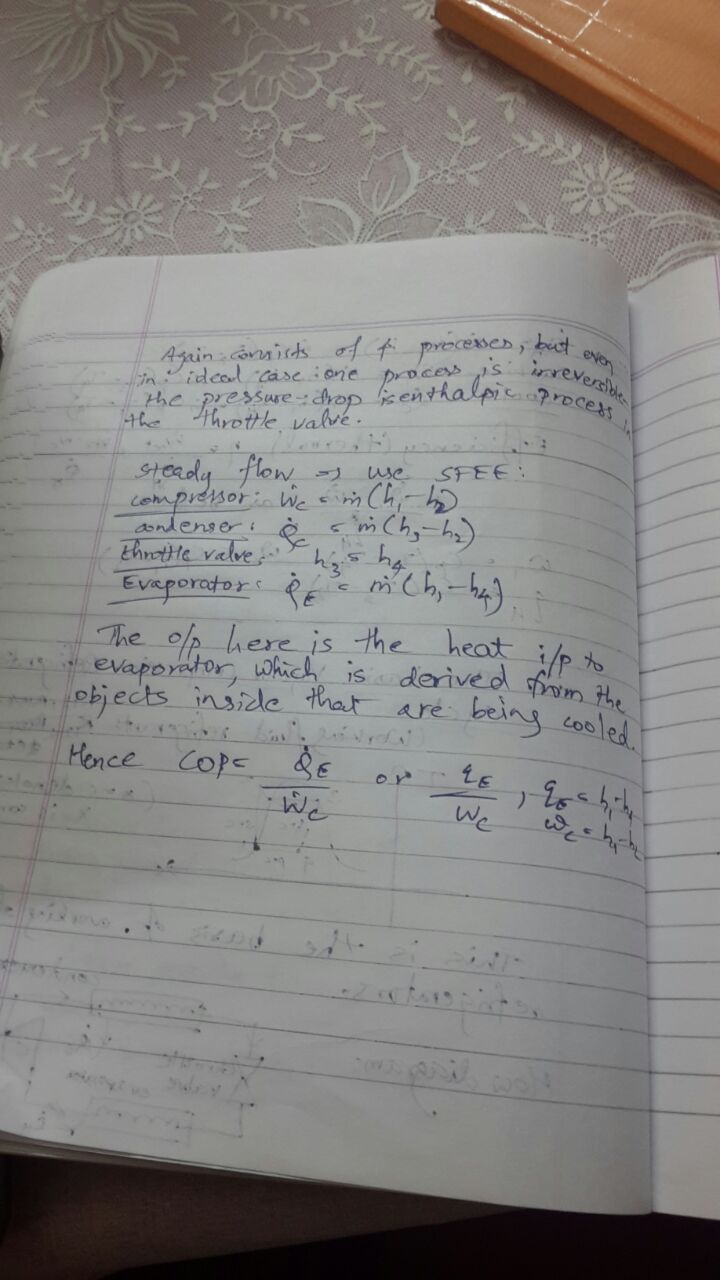 Again consists of 4 processes, but even
in ideal case one process is irreversible
the pressure drop isenthalpic process in
the throttle valve.
steady flow ⇒ use SFEE:
compressor: Ẇc = ṁ(h₁-h₂)
condenser: Q̇c = ṁ(h₃-h₂)
throttle valve: h₃ = h₄
Evaporator: Q̇E = ṁ(h₁-h₄)
The o/p here is the heat i/p to
evaporator, which is derived from the
objects inside that are being cooled.
Hence COP = Q̇E/Ẇc or qE/wc, qE = h₁-h₄
wc = h₁-h₂